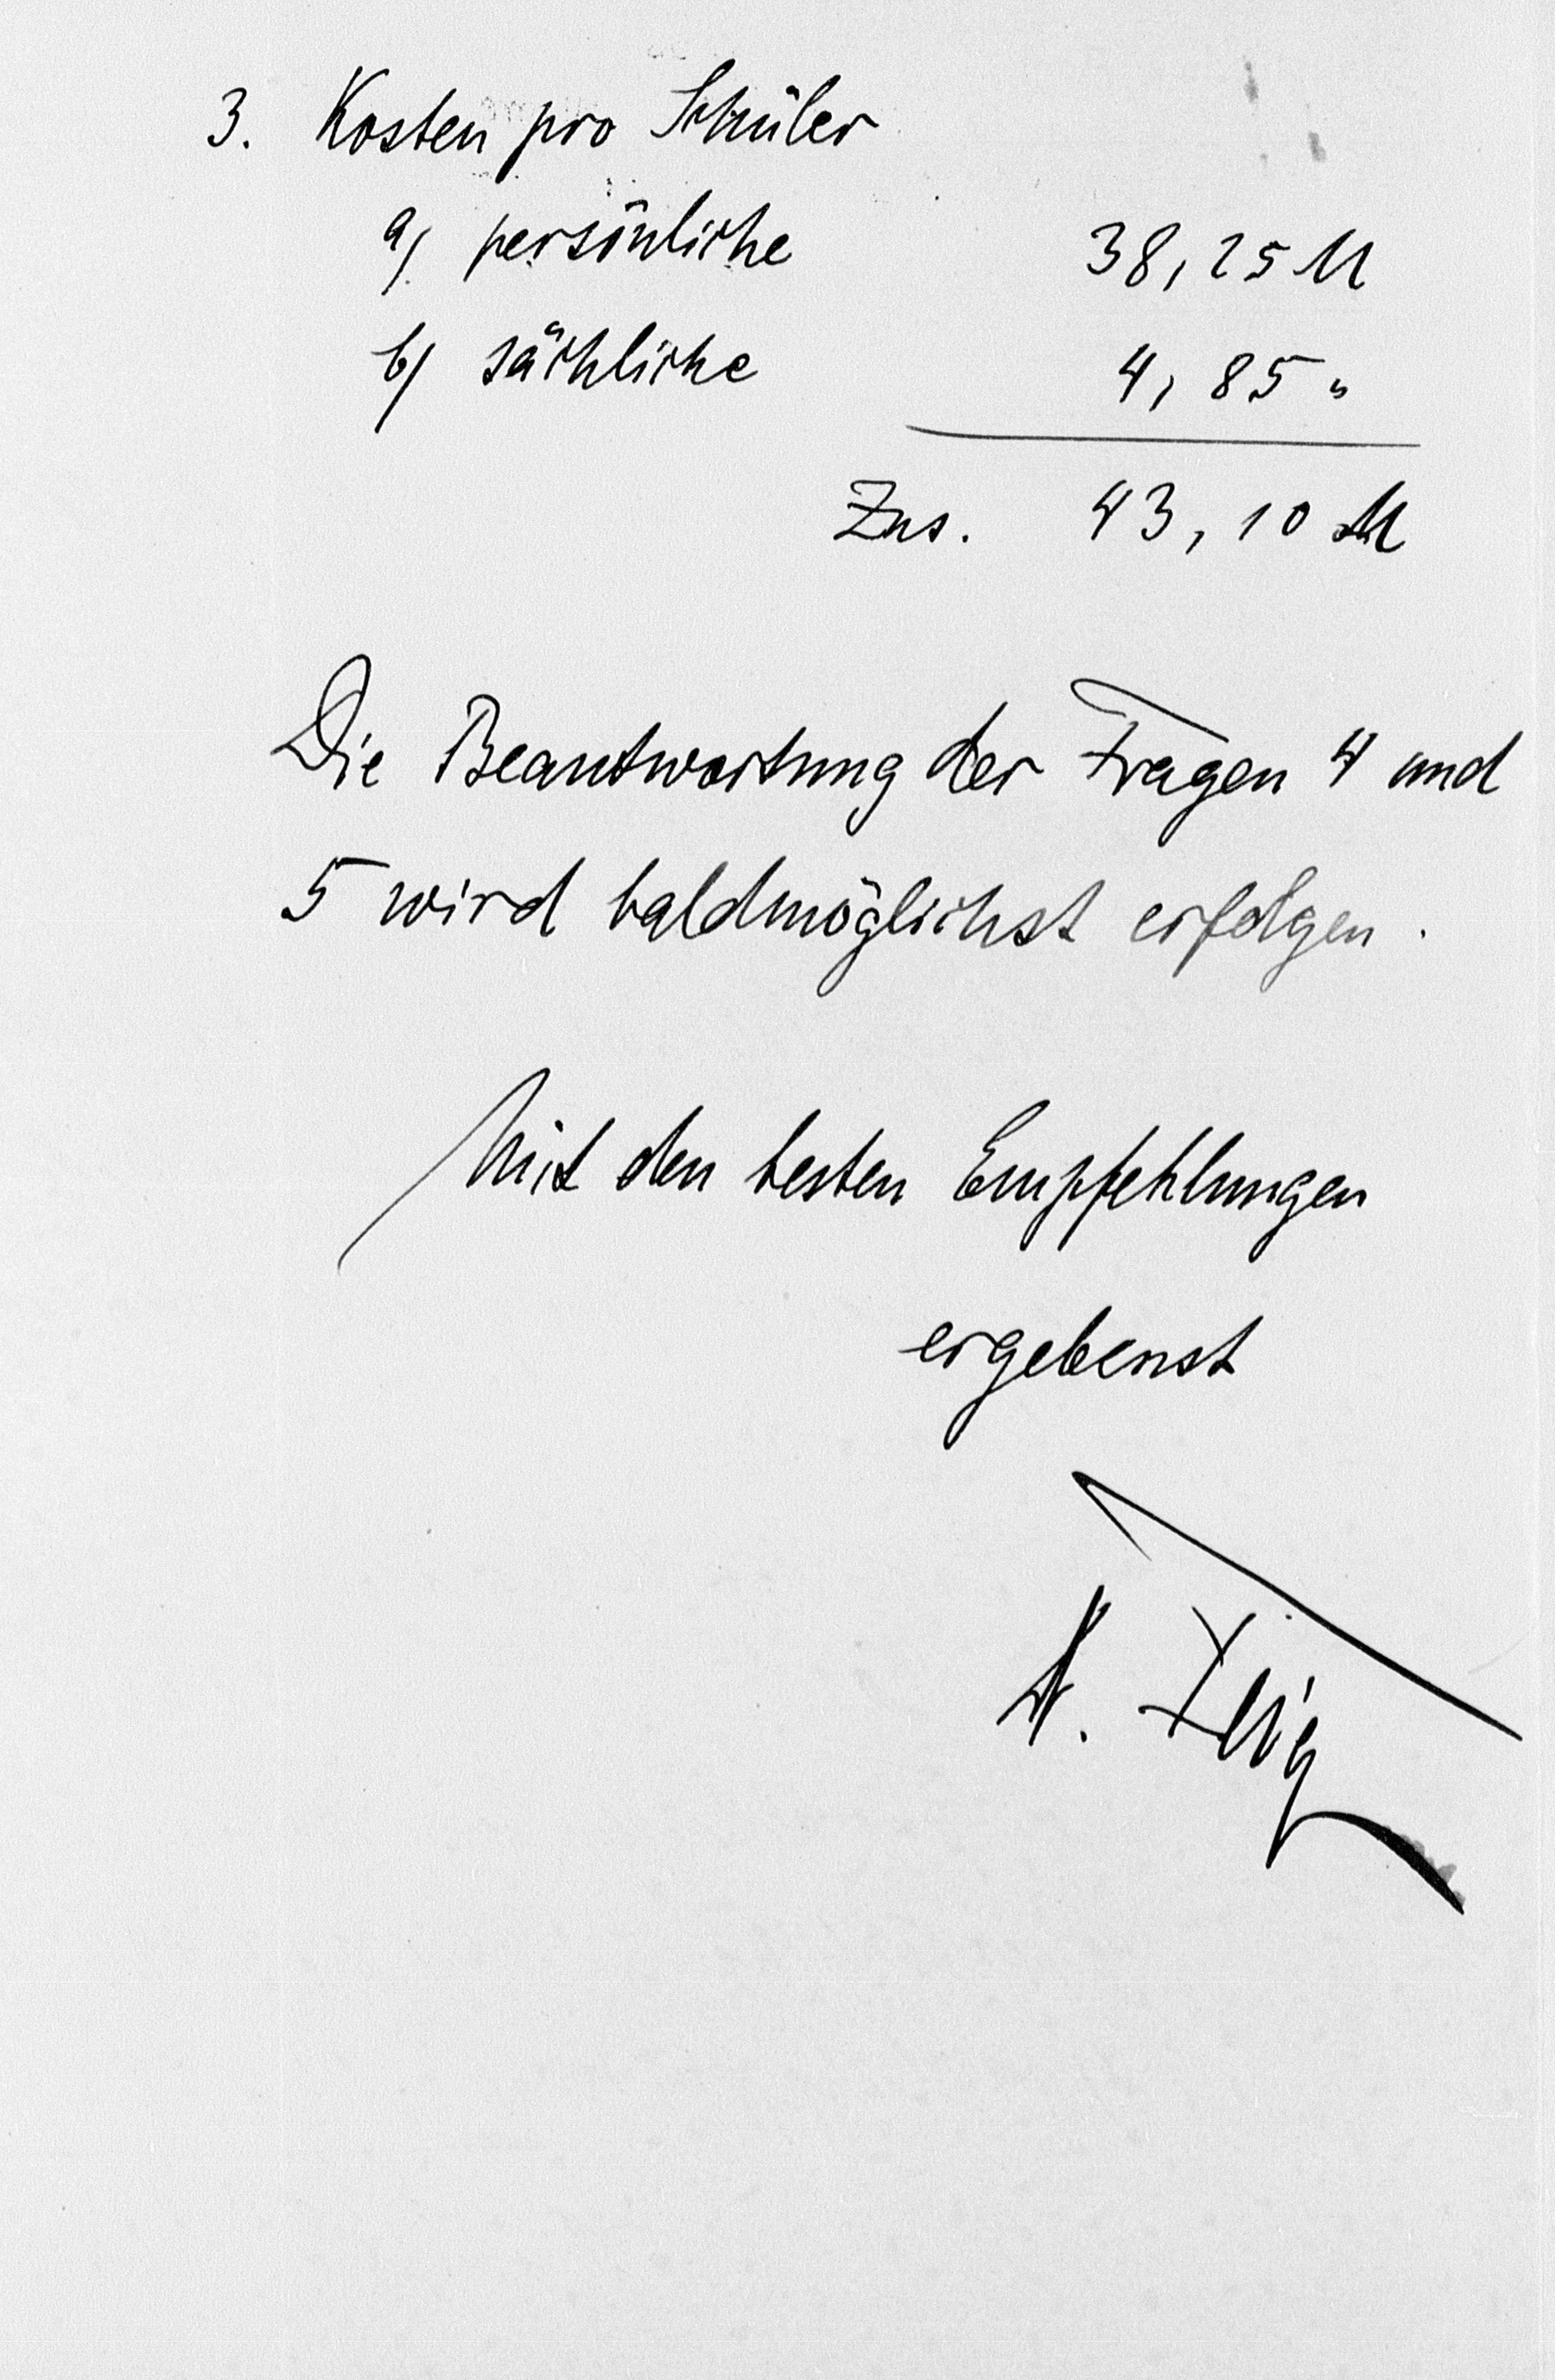 3. Kosten pro Schüler
a) persönliche 38,25 M
b) sächliche 4,85 "
Zus. 43,10 M
Die Beantwortung der Fragen 4 und
5 wird baldmöglichst erfolgen.
Mit den besten Empfehlungen
ergebenst
A.